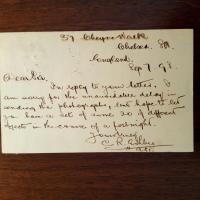 37 Cheyne Walk
Chelsea. SW.
England.
Sep 7. 98.
Dear Sir,
In reply to your letter, I
am sorry for the unavoidable delay in
sending the photographs, but hope to let
you have a set of some 20 of different
objects in the course of a fortnight.
Yours truly,
C. R.